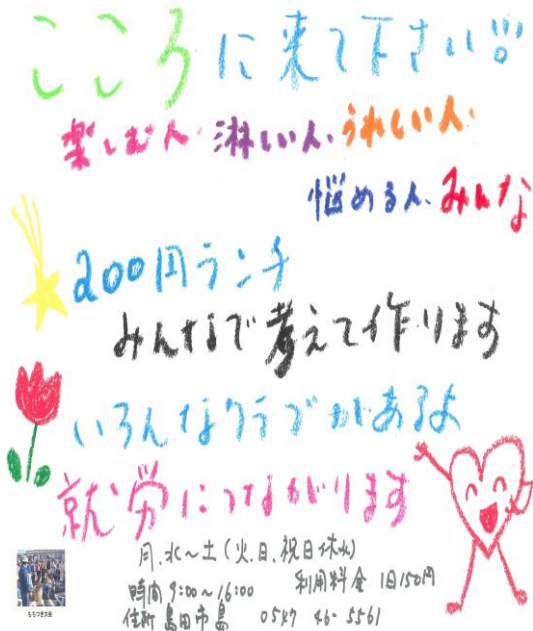 こころに来て下さい!!
楽しむ人.淋しい人.うれしい人.
悩める人.みんな
200円ランチ
みんなで考えて作ります
いろんなクラブがあるよ
就労につながります
月.水〜土(火.日.祝日休み)
時間 9:00〜16:00 利用料金 1日150円
住所 島田市島 0547 46-5561
もちつき大会